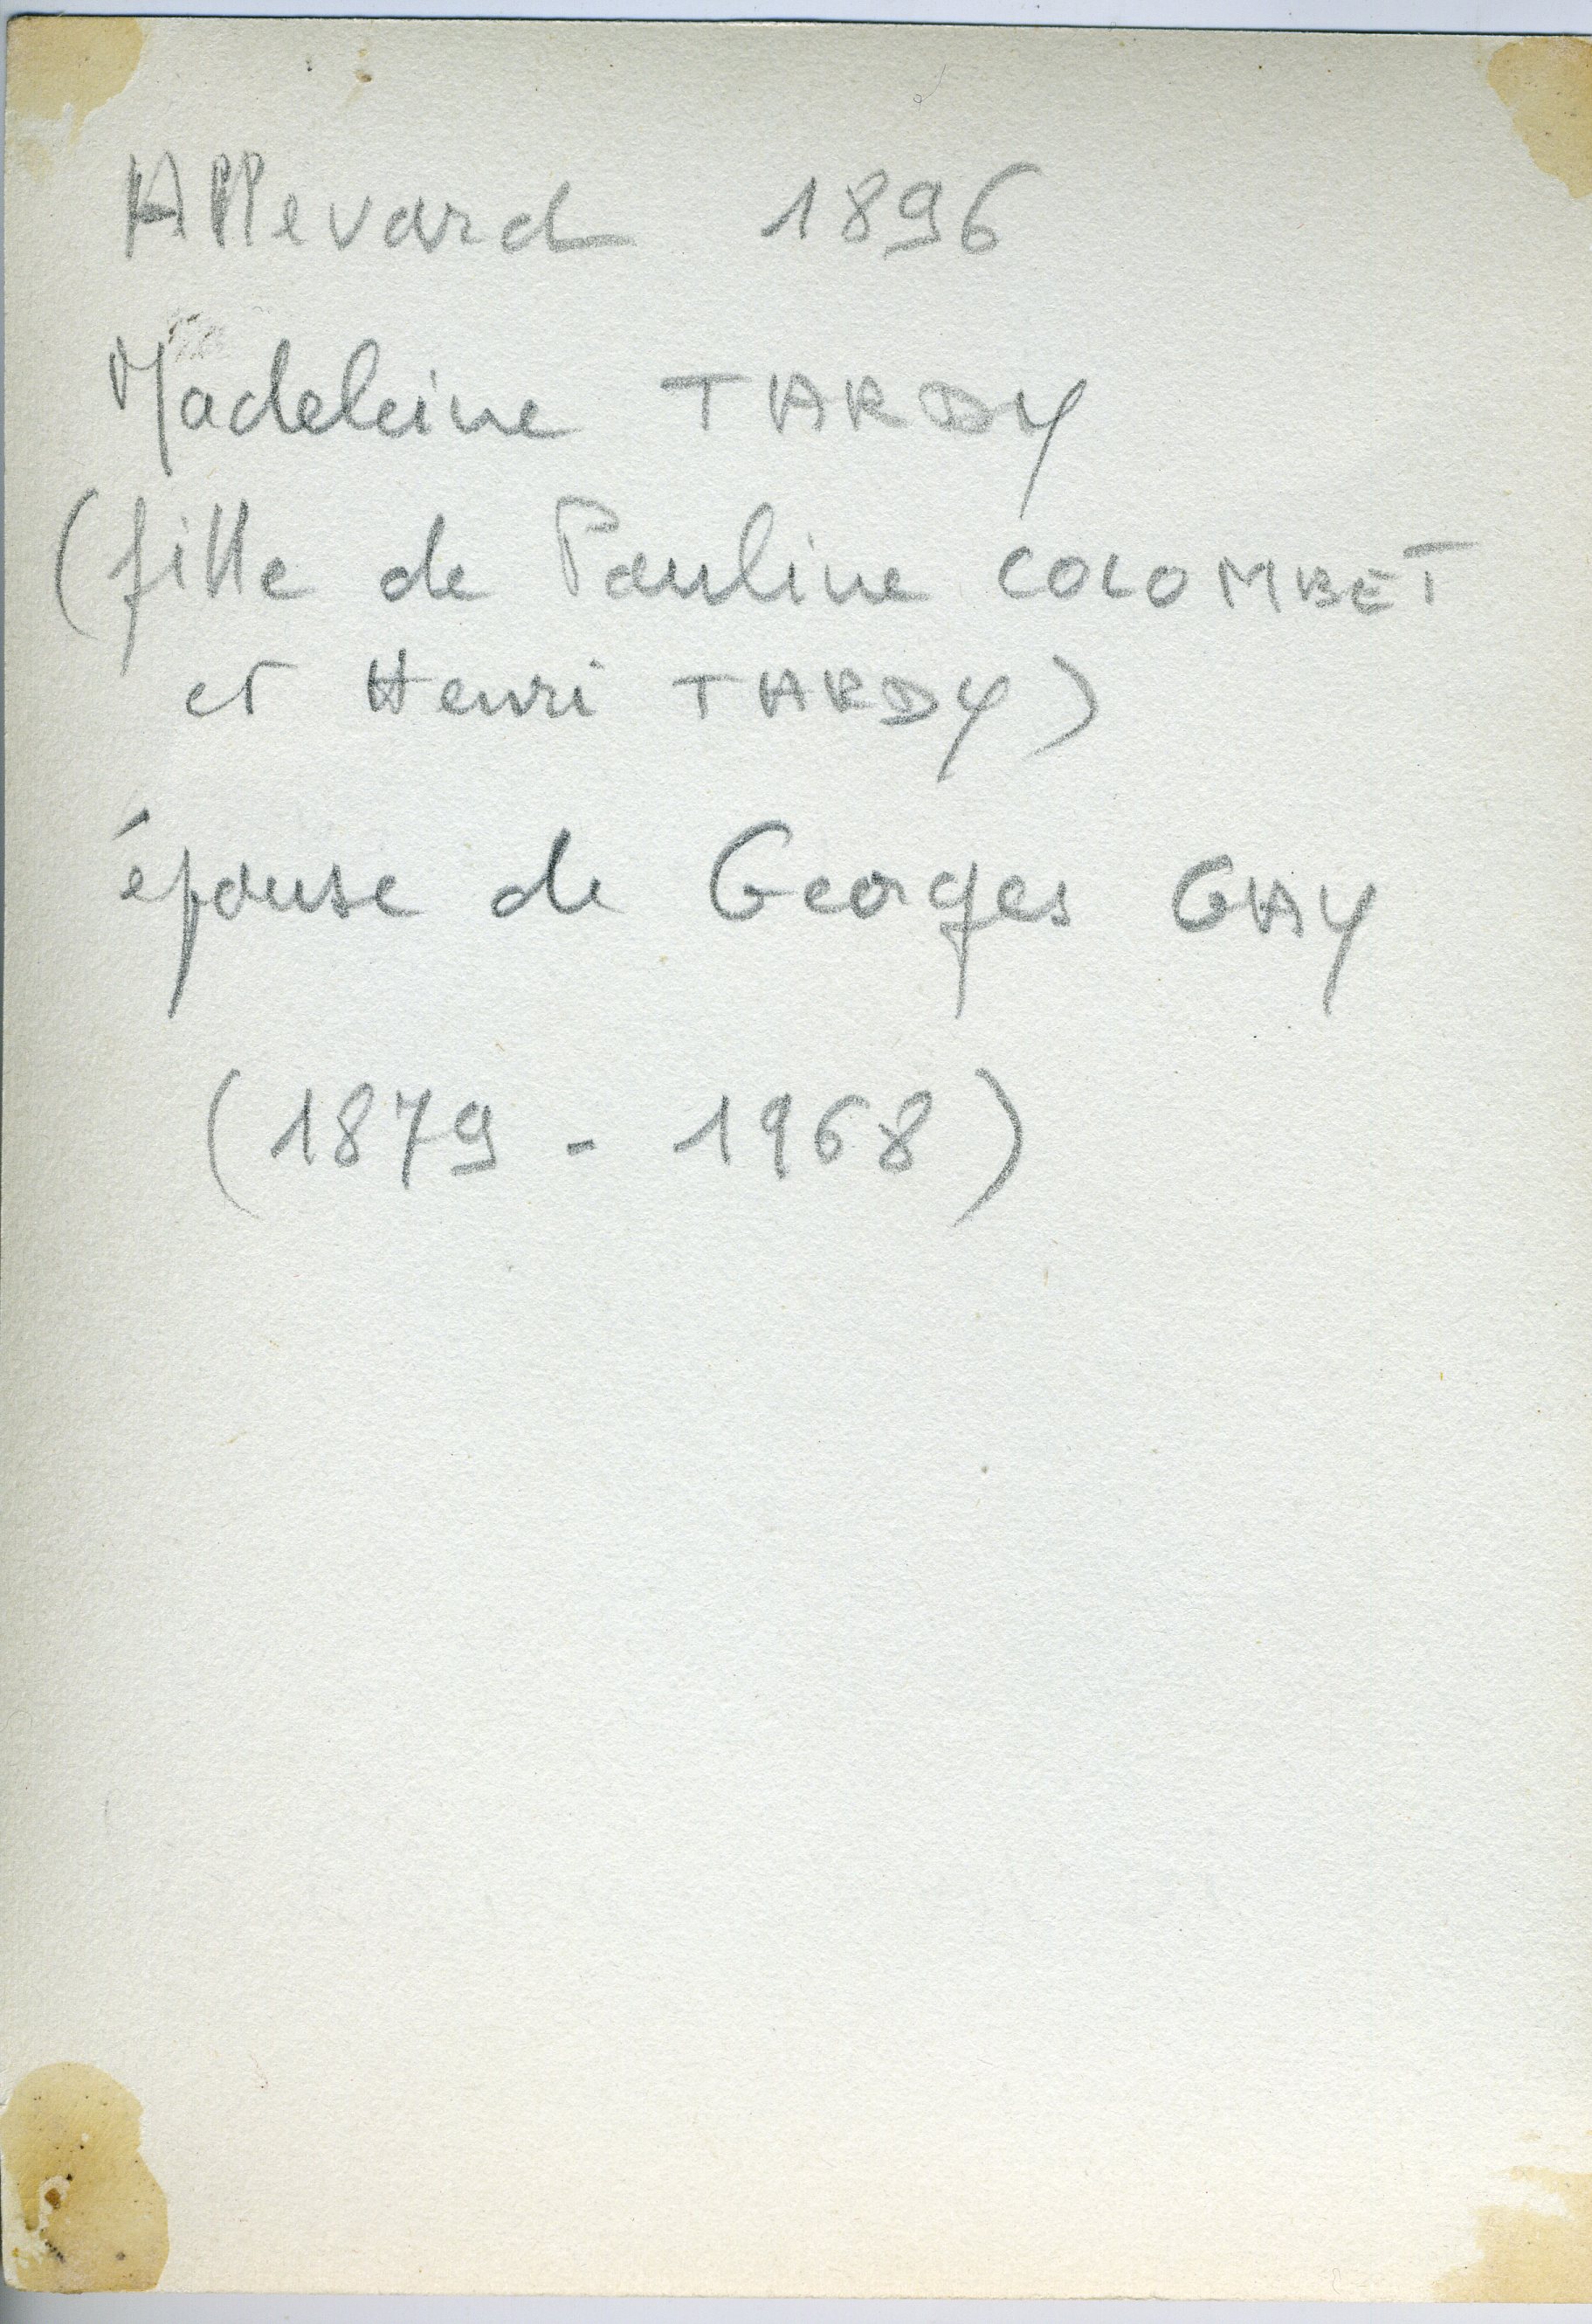 Allevard 1896
Madeleine TARDY
(fille de Pauline COLOMBET
et Henri TARDY)
épouse de Georges GAY
(1879 - 1968)